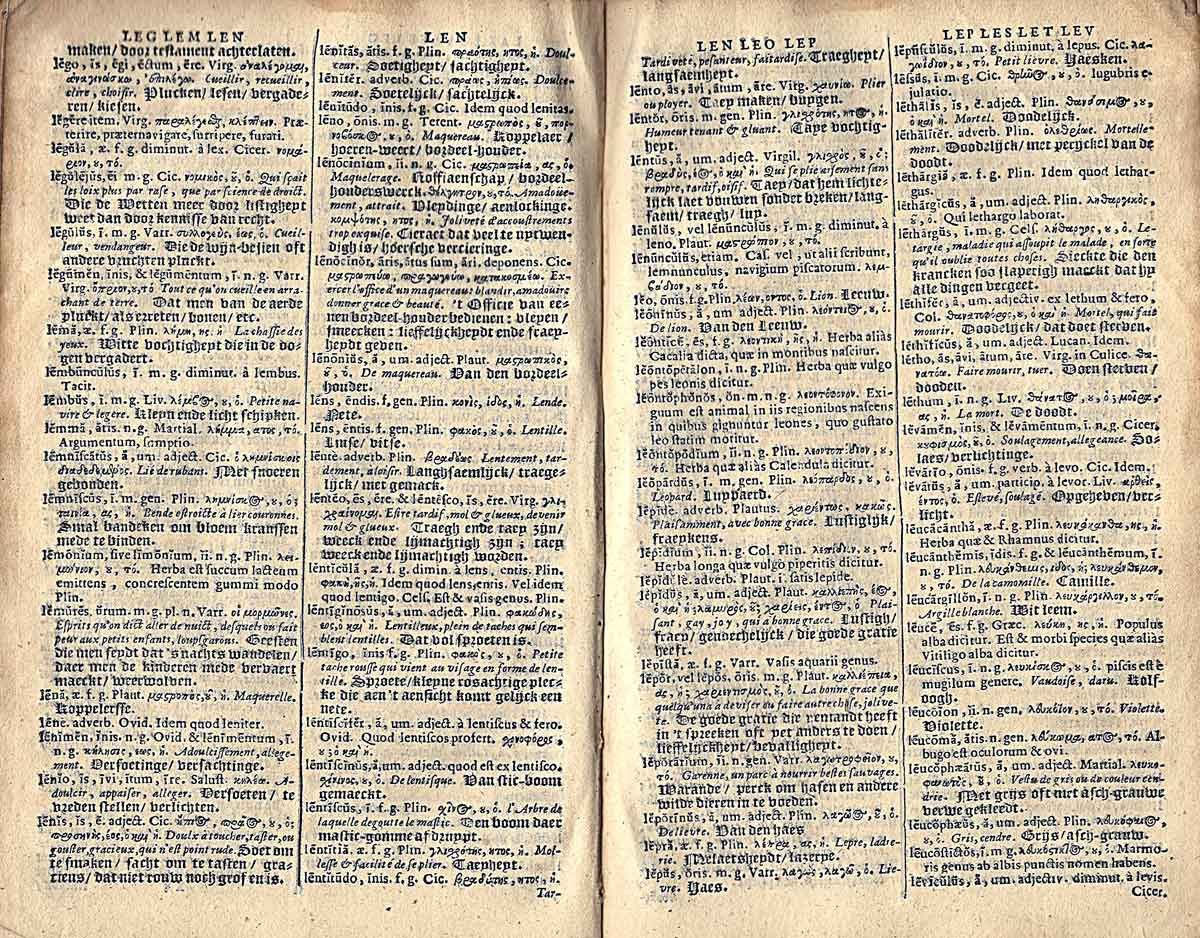 LEG LEM LEN
maken/ door testament achterlaten.
lĕgo, ĭs, ēgi, ēctum, ĕre. Virg. ἀναλέγομαι,
Cueillir, recueillir,
elire, choisir. Plucken/ lesen/ vergade-
ren/ kiesen.
lĕgĕre item, Virg. παραλέγεσθαι, κλέπτειν. Præ-
terire, præternavigare, surripere, furari.
lēgŭlă, æ. f. g. diminut. à lex. Cicer.
lēgŭlēĭŭs, ĕi m. g. Cic. νομικὸς, ȣ, ὁ. Qui sçait
les loix plus par rase, que par science de droict.
Die de Wetten meer door listigheyt
weet dan door kennisse van recht.
lēgŭlŭs, ī. m. g. Varr. συλλογεὺς, έως, ὁ. Cueil-
leur, vendangeur. Die de wijn-besien oft
andere vruchten pluckt.
lĕgūmĕn, ĭnis, & lĕgūmēntum, ī. n. g. Varr.
Virg. ὄσπριον, ȣ, τό Tout ce qu'on cueille en arra-
chant de terre. Dat men van de aerde
pluckt/ als erreten/ bonen/ etc.
lēmă, æ. f. g. Plin. λήμη, ης, ἡ La chassie des
yeux. Witte vochtigheyt die in de oo-
gen vergadert.
lēmbūncŭlŭs, ī. m. g. diminut. à lembus.
Tacit.
lēmbŭs, ī. m. g. Liv. λέμβος, ȣ, ὁ. Petite na-
vire & legere. Kleyn ende licht schipken.
lēmmă, ătis. n. g. Martial. λῆμμα, ατος, τό.
Argumentum, sumptio.
lēmnīscātŭs, ă, um. adject. Cic. ὁ λημνίσκοις
Lié de rubant. Met snoeren
gebonden.
lēmnīscŭs, ī. m. gen. Plin. λημνίσκος, ȣ, ὁ;
ταινία, ας, ἡ. Bende estroicte à lier couronnes.
Smal bandeken om bloem kranssen
mede te binden.
lēmōnĭum, sive limōnĭum, ĭi. n. g. Plin. λει-
μώνιον, ȣ, τό. Herba est succum lacteum
emittens, concrescentem gummi modo
Plin.
lĕmŭrĕs, ŭrum. m. g. pl. n. Varr. οἱ μορμῶνες,
Esprits qu'on dict aller de nuict, desquels on fait
peur aux petits enfants, loupsgarons. Geesten
die men seydt dat 's nachts wandelen/
daer men de kinderen mede vervaert
maeckt/ weerwolven.
lēnă, æ. f. g. Plaut. μαστροπὸς, ȣ, ἡ. Maquerelle.
Koppelersse.
lēne. adverb. Ovid. Idem quod leniter.
lēnīmĕn, ĭnis. n. g. Ovid. & lēnīmēntum, ī.
n. g. κήλησις, εως, ἡ. Adoulcissement, allege-
ment. Versoetinge/ versachtinge.
lēnĭo, ĭs, īvi, ītum, īre. Salust. κηλέω. A-
doulcir, appaiser, alleger. Versoeten/ te
vreden stellen/ verlichten.
lēnĭs, ĭs, ĕ. adject. Cic. ἤπιος, πρᾶος, ȣ, ὁ,
προσηνὴς, έος, ὁ καὶ ἡ. Doulx à toucher, taster, ou
gouster, gracieux, qui n'est point rude. Soet om
te smaken/ sacht om te tasten/ gra-
tieus/ dat niet rouw noch grof en is.
LEN
lēnĭtās, ātis. f. g. Plin. πραότης, ητος, ἡ. Doul-
ceur. Soetigheyt/ sachtigheyt.
lēnĭtĕr. adverb. Cic. πράως, ἠπίως. Doulce-
ment. Soetelijck/ sachtelijck.
lēnĭtūdo, ĭnis. f. g. Cic. Idem quod lenitas.
lēno, ōnis. m. g. Terent. μαστρωπὸς, ȣ, πορ-
νοβοσκὸς, ȣ, ὁ. Maquereau. Koppelaer/
hoeren-weert/ bordeel-houder.
lēnōcĭnĭum, ĭi. n. g. Cic. μαστρωπεία, ας, ἡ.
Maquelerage. Koffiaenschap/ bordeel-
houders weerck. θέλγητρον, ȣ, τό. Amadoue-
ment, attrait. Vleydinge/ aenlockinge.
κομψότης, ητος, ἡ. Joliveté d'accoustrements
trop exquise. Cieraet dat veel te nytwen-
digh is/ hoersche vercieringe.
lēnōcĭnŏr, āris, ātus sum, āri. deponens. Cic.
Ex-
ercer l'office d'un maquereau blandir, amadouir,
donner grace & beauté. 't Officie van ee-
nen bordeel-houder bedienen: vleyen/
smeecken: lieffelijckheydt ende fraey-
heydt geven.
lēnōnĭŭs, ă, um. adject. Plaut. μαστρωπικὸς,
ȣ, ὁ. De maquereau. Van den bordeel-
houder.
lēns, ēndis. f. gen. Plin. κονὶς, ίδος, ἡ. Lende.
Nete.
lēns, ēntis. f. gen. Plin. φακὸς, ȣ, ὁ. Lentille.
Linse/ vitse.
lēntè. adverb. βραδέως Lentement, tar-
dement, à loisir. Langhsaemlijck/ traege-
lijck/ met gemack.
lēntĕo, ēs, ēre, & lēntēsco, ĭs, ĕre. Virg. γλι-
χραίνομαι. Estre tardif, mol & glueux, devenir
mol & glueux. Traegh ende taey zijn/
weeck ende lijmachtigh zijn; taey
weeck ende lijmachtigh worden.
lēntĭcŭlă, æ. f. g. dimin. à lens, entis. Plin.
φακὴ, ῆς, ἡ. Idem quod lens, entis. Vel idem
quod lentigo. Cels. Est & vasis genus. Plin.
lēntīgĭnōsŭs, ă, um. adject. Plin. φακώδης,
εως, ὁ καὶ ἡ. Lentilleux, plein de taches qui sem-
blent lentilles. Dat vol sproeten is.
lēntīgo, ĭnis f. g. Plin. φακὸς, ȣ, ὁ. Petite
tache rousse qui vient au visage en forme de len-
tille. Sproete/ kleyne rosachtige plec-
ke die aen't aensicht komt gelijck een
nete.
lēntīscĭfĕr, ă, um. adject. à lentiscus & fero.
Ovid. Quod lentiscos profert. σχινοφόρος,
ȣ, ὁ καὶ ἡ.
lēntīscĭnŭs, ă, um. adject. quod est ex lentisco.
σχίνινος, ȣ, ὁ. De lentisque. Van stic-boom
gemaeckt.
lēntīscŭs, ī. f. g. Plin. σχῖνος, ȣ, ὁ. l'Arbre de
laquelle degoutte le mastic. Den boom daer
mastic-gomme af druypt.
lēntĭtĭă, æ. f. g. Plin. γλισχρότης, ητος, ἡ. Mol-
lesse & facilité de se plier. Taeyheyt.
lēntĭtūdo, ĭnis. f. g. Cic. βραδύτης, ητος, ἡ.
Tar-
LEN LEO LEP
Tardiveté, pesanteur, faitardise. Traegheyt/
langsaemheyt.
lēnto, ās, āvi, ātum, āre. Virg. χαυνόω. Plier
ou ployer. Taey maken/ buygen.
lēntŏr, ōris. m. gen. Plin. γλισχρότης, ητος, ἡ.
Humeur tenant & gluant. Taye vochtig-
heyt.
lēntŭs, ă, um. adject. Virgil. γλίσχρος, ȣ, ὁ;
βραδὺς, έος, ὁ καὶ ἡ. Qui se plie aisement sans
rompre, tardif, oisif. Taey/ dat hem lichte-
lijck laet vouwen sonder breken/ lang-
saem/ traegh/ luy.
lēnŭlŭs, vel lēnūncŭlŭs, ī. m. g. diminut. à
leno. Plaut. μαστρώπιον, ȣ, τό.
lēnūncŭlŭs, etiam. Cæs. vel, ut alii scribunt,
lemnunculus, navigium piscatorum. λεμ-
βάδιον, ȣ, τό.
lĕo, ōnis. f. g. Plin. λέων, οντος, ὁ. Lion. Leeuw.
lĕōnīnŭs, ă, um. adject. Plin. λεόντειος, ȣ, ὁ.
De lion. Van den Leeuw.
lĕōntĭcē, ēs, f. g. λεοντικὴ, ῆς, ἡ. Herba aliàs
Cacalia dicta, quæ in montibus nascitur.
lĕōntŏpĕtălon, ī. n. g. Plin. Herba quæ vulgo
pes leonis dicitur.
lĕōntŏphŏnŏs, ōn. m. n. g. λεοντοφόνον. Exi-
guum est animal in iis regionibus nascens
in quibus gignuntur leones, quo gustato
leo statim moritur.
lĕōntŏpŏdĭum, ĭi. n. g. Plin. λεοντοπόδιον, ȣ,
τό. Herba quæ aliàs Calendula dicitur.
lĕŏpārdŭs, ī. m. g. Plin. λεόπαρδος, ȣ, ὁ.
Leopard. Luypaerd.
lĕpĭdè. adverb. Plautus. χαριέντως, κομψῶς.
Plaisamment, avec bonne grace. Lustiglijck/
fraeykens.
lĕpĭdĭum, ĭi. n. g. Col. Plin. λεπίδιον, ȣ, τό.
Herba longa quæ vulgo piperitis dicitur.
lĕpĭdŭlè. adverb. Plaut. i. satis lepide.
lĕpĭdŭs, ă, um. adject. Plaut. καλλιεπὴς, έος,
ὁ καὶ ἡ; λαμυρὸς, ȣ; χαρίεις, εντος, ὁ. Plai-
sant, gay, joy, qui à bonne grace. Lustigh/
fraey/ genoechelijck/ die goede gratie
heeft.
lĕpīstă, æ. f. g. Varr. Vasis aquarii genus.
lĕpŏr, vel lĕpōs, ōris. m. g. Plaut. καλλιέπεια,
ας, ἡ; χαριεντισμὸς, ȣ, ὁ. La bonne grace que
quelqu'un a deviser ou faire autre chose, jolive-
té. De goede gratie die yemandt heeft
in 't spreeken oft yet anders te doen/
lieffelijckheyt/ bevalligheyt.
lĕpŏrārĭum, ĭi. n. gen. Varr. λαγωτροφεῖον, ȣ,
τό. Garenne, un parc à nourrir bestes sauvages.
Warande/ perck om hasen en andere
wilde dieren in te boeden.
lĕpŏrīnŭs, ă, um. adject. Plin. λαγῷος, ȣ, ὁ.
De lievre. Van den haes
lĕpră, æ. f. g. Plin. λέπρα, ας, ἡ. Lepre, ladre-
rie. Melaetsheydt/ lazerye.
lĕpŭs, ŏris. m. g. Varr. λαγὼς, λαγὼ, ὁ. Lie-
vre. Haes.
LEP LES LET LEV
lĕpūscŭlŭs, ī. m. g. diminut. à lepus. Cic. λα-
γώδιον, ȣ, τό. Petit lievre. Haesken.
lēsŭs, ī. m. g. Cic. θρῆνος, ȣ, ὁ. lugubris e-
julatio.
lēthālĭs, ĭs, ĕ. adject. Plin. θανάσιμος, ȣ,
ὁ καὶ ἡ. Mortel. Doodelijck.
lēthālĭtĕr. adverb. Plin. ὀλεθρίως. Mortelle-
ment. Doodelijck/ met peryckel van de
doodt.
lēthārgĭă, æ. f. g. Plin. Idem quod lethar-
gus.
lēthārgĭcŭs, ă, um. adject. Plin. ληθαργικὸς,
ȣ, ὁ. Qui lethargo laborat.
lēthārgŭs, ī. m. g. Cels. λήθαργος, ȣ, ὁ. Le-
targie, maladie qui assoupit le malade, en sorte
qu'il oublie toutes choses. Sieckte die den
krancken soo slaperigh maeckt dat hy
alle dingen vergeet.
lēthĭfĕr, ă, um. adjectiv. ex lethum & fero,
Col. θανατοφόρος, ȣ, ὁ καὶ ἡ. Mortel, qui fait
mourir. Doodelijck/ dat doet sterven.
lēthĭfĭcŭs, ă, um. adject. Lucan. Idem.
lētho, ās, āvi, ātum, āre. Virg. in Culice. θα-
νατόω. Faire mourir, tuer. Doen sterven/
dooden.
lēthum, ī. n. g. Liv. θάνατος, ȣ, ὁ; μοῖρα,
ας, ἡ. La mort. De doodt.
lĕvāmĕn, ĭnis, & lĕvāmēntum, ī. n. g. Cicer.
κουφισμὸς, ȣ, ὁ. Soulagement, allegeance. So-
laes/ verlichtinge.
lĕvātĭo, ōnis. f. g. verb. à levo. Cic. Idem.
lĕvātŭs, ă, um. particip. à levor. Liv. ἀρθεὶς,
έντος, ὁ. Eslevé, soulagé. Opgeheven/ ver-
licht.
leucăcānthă, æ. f. g. Plin. λευκάκανθα, ης, ἡ.
Herba quæ & Rhamnus dicitur.
leucānthĕmis, ĭdis. f. g. & leucānthĕmum, ī.
n. g. Plin. λευκανθεμὶς, ίδος, ἡ, λευκάνθεμον,
ȣ, τό. De la camomille. Camille.
leucārgīllon, ī. n. g. Plin. λευκάργιλλον, ȣ, τό.
Argille blanche. Wit leem.
leucē, ēs. f. g. Græc. λεύκη, ης, ἡ. Populus
alba dicitur. Est & morbi species quæ aliàs
Vitiligo alba dicitur.
leucīscŭs, ī. n. g. λευκίσκος, ȣ, ὁ. piscis est è
mugilum genere. Vaudoise, daru. Kolf-
oogh.
leucŏĭon, ĭi. n. gen. λευκόϊον, ȣ, τό. Violette.
Violette.
leucōmă, ătis. n. gen. λεύκωμα, ατος, τό. Al-
bugo est oculorum & ovi.
leucŏphæātŭs, ă, um. adject. Martial.
ȣ, ὁ. Vestu de gris ou de couleur cen-
drée. Met grijs oft niet asch-grauwe
verwe gekleedt.
leucŏphæŭs, ă, um. adject. Plin. λευκόφαιος,
ȣ, ὁ. Gris, cendre. Grijs/ asch-grauw.
leucŏstīctŏs, ī. m. g. λευκόστικτος, ȣ, ὁ. Marmo-
ris genus ab albis punctis nomen habens.
lĕvĭcŭlŭs, ă, um. adjectiv. diminut. à levis.
Cicer.